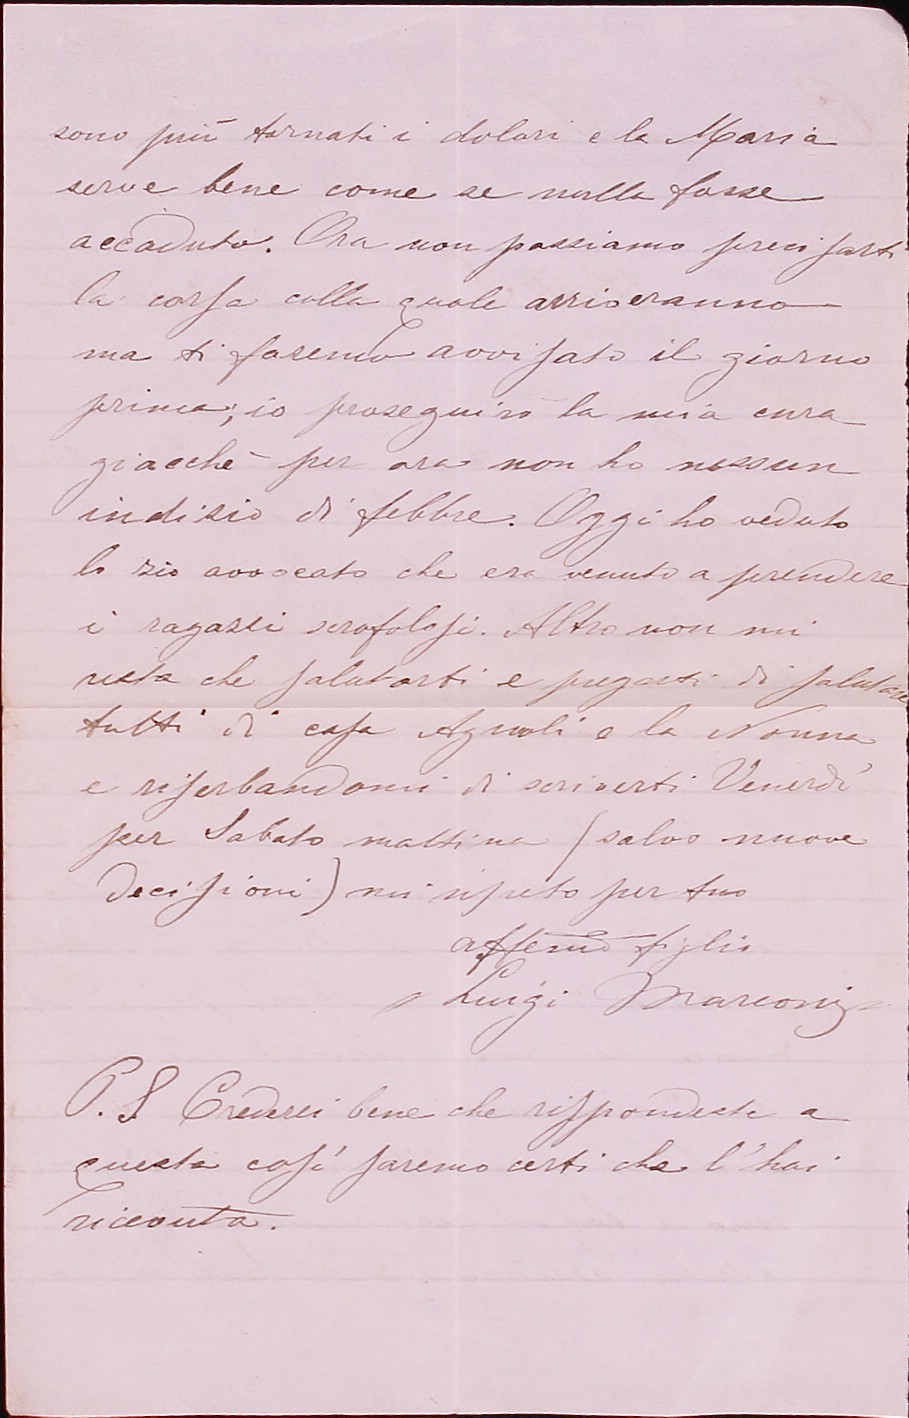 sono più tornati i dolori e la Maria
serve bene come se nulla fosse
accaduto. Ora non possiamo precisarti
la corsa colla quale arriveranno
ma ti faremo avvisato il giorno
prima; io proseguirò la mia cura
giacchè per ora non ho nessun
indizio di febbre. Oggi ho veduto
lo zio avvocato che era venuto a prendere
i ragazzi scrofolosi. Altro non mi
resta che salutarti e pregarti di salutare
tutti di casa Agnoli e la Nonna
e riserbandomi di scriverti Venerdì
per Sabato mattina (salvo nuove
decisioni) mi ripeto per tuo
affemo figlio
Luigi Marconi
P. S Crederei bene che rispondeste a
questa così saremo certi che l'hai
ricevuta.